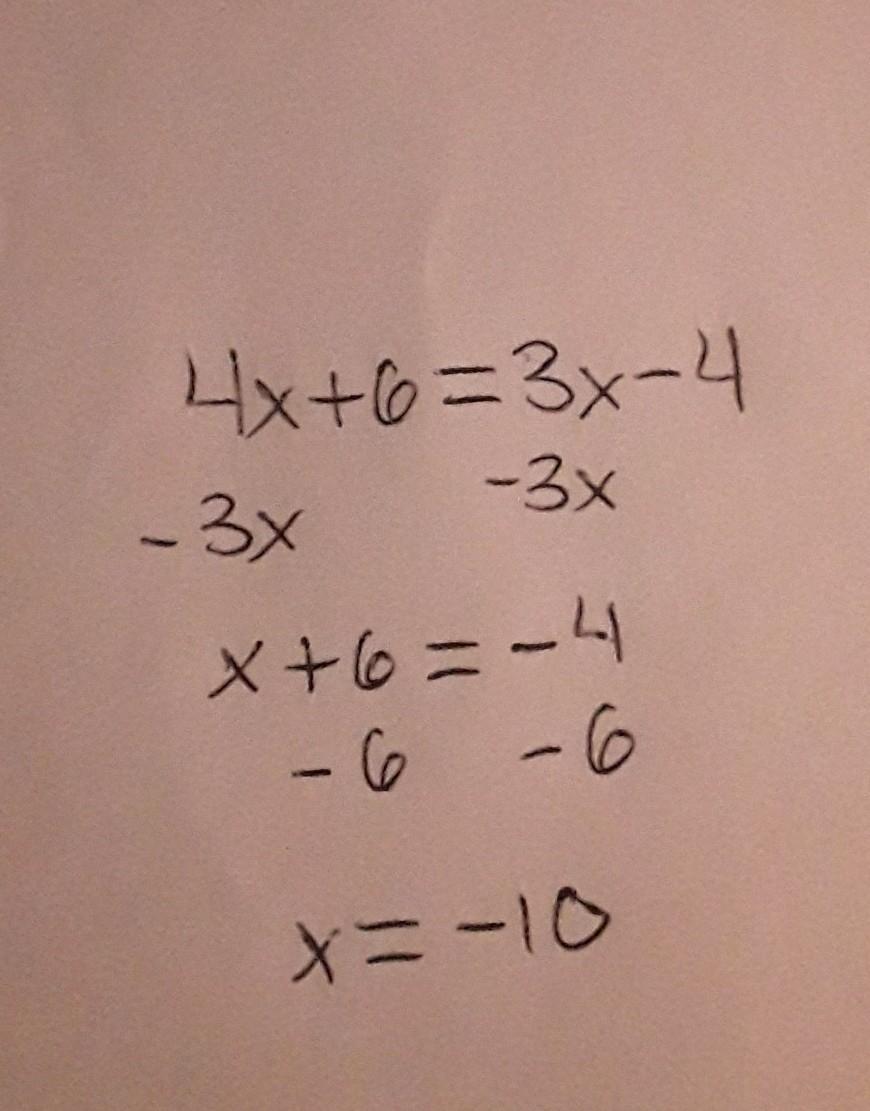 4x+6=3x-4
-3x -3x
x+6=-4
-6 -6
x=-10